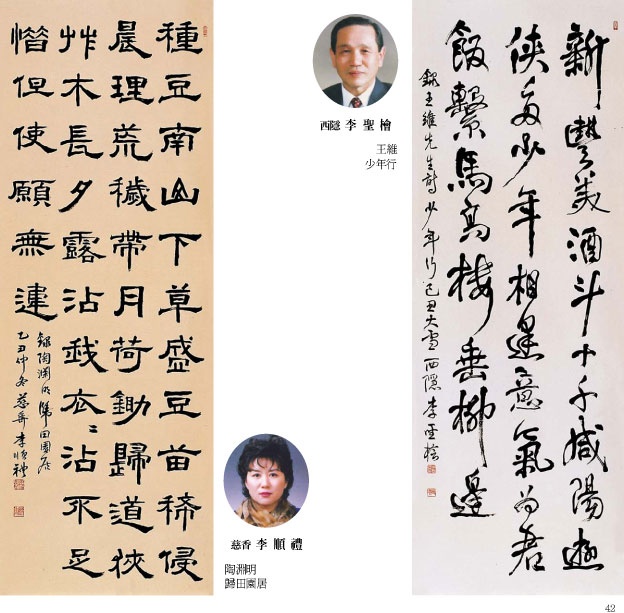 新豐美酒斗十千咸陽遊
俠多少年相逢意氣為君
飲繫馬高樓垂柳邊
錄王維先生詩少年行己丑大雪西隱李聖檜
西隱 李聖檜
王維
少年行
種豆南山下草盛豆苗稀侵
晨理荒穢帶月荷鋤歸道狹
艸木長夕露沾我衣〻沾不足
惜但使願無違
錄陶淵明歸田園居
己丑仲冬慈香李順礼
慈香 李順禮
陶淵明
歸田園居
42